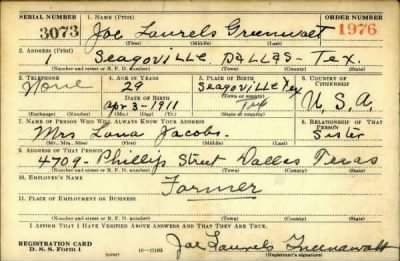 SERIAL NUMBER 1. NAME (Print) ORDER NUMBER
3073 Joe Laurels Greenwalt 1976
(First) (Middle) (Last)
2. ADDRESS (Print)
1 Seagoville Dallas - Tex.
(Number and street or R. F. D. number) (Town) (County) (State)
3. TELEPHONE 4. AGE IN YEARS 5. PLACE OF BIRTH 6. COUNTRY OF CITIZENSHIP
None 29 Seagoville Tex
DATE OF BIRTH (Town or county)
Apr 3 - 1911 Tex U.S.A.
(Exchange) (Number) (Mo.) (Day) (Yr.) (State or country)
7. NAME OF PERSON WHO WILL ALWAYS KNOW YOUR ADDRESS 8. RELATIONSHIP OF THAT PERSON
Mrs Lana Jacobs. Sister
(Mr., Mrs., Miss) (First) (Middle) (Last)
9. ADDRESS OF THAT PERSON
4709 - Phillips Street Dallas Texas
(Number and street or R. F. D. number) (Town) (County) (State)
10. EMPLOYER'S NAME
Farmer
11. PLACE OF EMPLOYMENT OR BUSINESS
(Number and street or R. F. D. number) (Town) (County) (State)
I AFFIRM THAT I HAVE VERIFIED ABOVE ANSWERS AND THAT THEY ARE TRUE.
REGISTRATION CARD
D. S. S. Form 1 (over) Joe Laurels Greenawalt
(Registrant's signature)